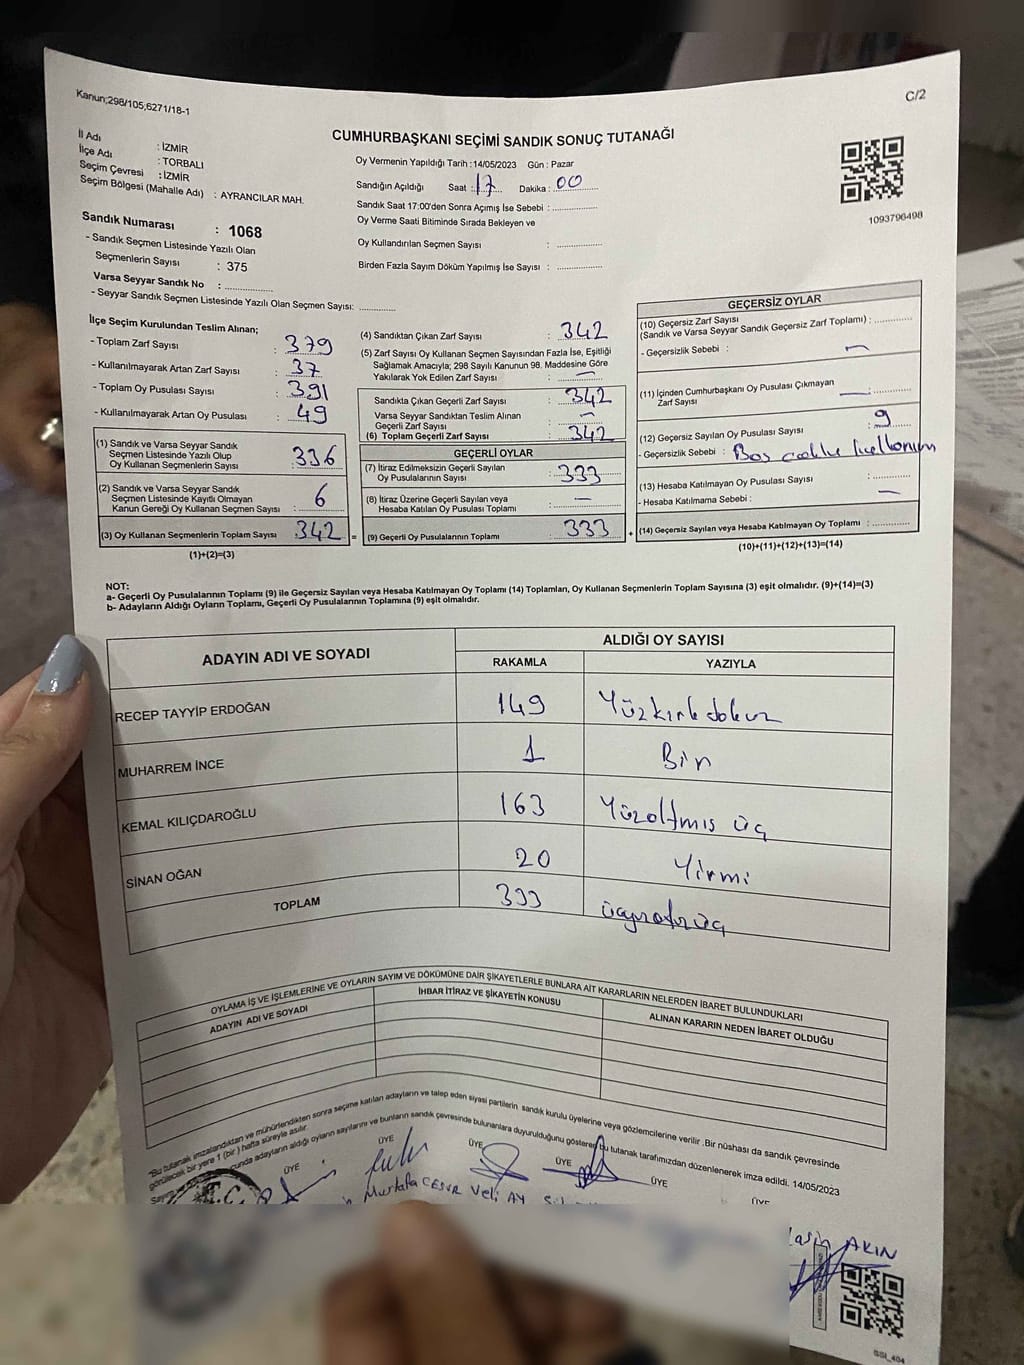 Kanun;298/105,6271/18-1
C/2
CUMHURBAŞKANI SEÇİMİ SANDIK SONUÇ TUTANAĞI
İl Adı : İZMİR
İlçe Adı : TORBALI
Seçim Çevresi : İZMİR
Seçim Bölgesi (Mahalle Adı) : AYRANCILAR MAH.
Sandık Numarası : 1068
- Sandık Seçmen Listesinde Yazılı Olan
Seçmenlerin Sayısı : 375
Varsa Seyyar Sandık No : ............
- Seyyar Sandık Seçmen Listesinde Yazılı Olan Seçmen Sayısı: ............
Oy Vermenin Yapıldığı Tarih : 14/05/2023 Gün : Pazar
Sandığın Açıldığı Saat : 17 Dakika : 00
Sandık Saat 17:00'den Sonra Açılmış İse Sebebi : ............
Oy Verme Saati Bitiminde Sırada Bekleyen ve
Oy Kullandırılan Seçmen Sayısı : ............
Birden Fazla Sayım Döküm Yapılmış İse Sayısı : ............
1093796498
İlçe Seçim Kurulundan Teslim Alınan;
- Toplam Zarf Sayısı : 379
- Kullanılmayarak Artan Zarf Sayısı : 37
- Toplam Oy Pusulası Sayısı : 391
- Kullanılmayarak Artan Oy Pusulası : 49
(1) Sandık ve Varsa Seyyar Sandık
Seçmen Listesinde Yazılı Olup
Oy Kullanan Seçmenlerin Sayısı : 336
(2) Sandık ve Varsa Seyyar Sandık
Seçmen Listesinde Kayıtlı Olmayan
Kanun Gereği Oy Kullanan Seçmen Sayısı : 6
(3) Oy Kullanan Seçmenlerin Toplam Sayısı : 342
(1)+(2)=(3)
(4) Sandıktan Çıkan Zarf Sayısı : 342
(5) Zarf Sayısı Oy Kullanan Seçmen Sayısından Fazla İse, Eşitliği
Sağlamak Amacıyla; 298 Sayılı Kanunun 98. Maddesine Göre
Yakılarak Yok Edilen Zarf Sayısı : —
Sandıkta Çıkan Geçerli Zarf Sayısı : 342
Varsa Seyyar Sandıktan Teslim Alınan
Geçerli Zarf Sayısı : —
(6) Toplam Geçerli Zarf Sayısı : 342
GEÇERLİ OYLAR
(7) İtiraz Edilmeksizin Geçerli Sayılan
Oy Pusulalarının Sayısı : 333
(8) İtiraz Üzerine Geçerli Sayılan veya
Hesaba Katılan Oy Pusulası Toplamı : —
(9) Geçerli Oy Pusulalarının Toplamı : 333
GEÇERSİZ OYLAR
(10) Geçersiz Zarf Sayısı
(Sandık ve Varsa Seyyar Sandık Geçersiz Zarf Toplamı) : ............
- Geçersizlik Sebebi : —
(11) İçinden Cumhurbaşkanı Oy Pusulası Çıkmayan
Zarf Sayısı : —
(12) Geçersiz Sayılan Oy Pusulası Sayısı : 9
- Geçersizlik Sebebi : Boş
(13) Hesaba Katılmayan Oy Pusulası Sayısı : ............
- Hesaba Katılmama Sebebi : —
(14) Geçersiz Sayılan veya Hesaba Katılmayan Oy Toplamı : ............
(10)+(11)+(12)+(13)=(14)
NOT:
a- Geçerli Oy Pusulalarının Toplamı (9) ile Geçersiz Sayılan veya Hesaba Katılmayan Oy Toplamı (14) Toplamları, Oy Kullanan Seçmenlerin Toplam Sayısına (3) eşit olmalıdır. (9)+(14)=(3)
b- Adayların Aldığı Oyların Toplamı, Geçerli Oy Pusulalarının Toplamına (9) eşit olmalıdır.
ADAYIN ADI VE SOYADI ALDIĞI OY SAYISI
RAKAMLA YAZIYLA
RECEP TAYYİP ERDOĞAN 149 Yüzkırkdokuz
MUHARREM İNCE 1 Bir
KEMAL KILIÇDAROĞLU 163 Yüzaltmış üç
SİNAN OĞAN 20 Yirmi
TOPLAM 333 üçyüzotuzüç
OYLAMA İŞ VE İŞLEMLERİNE VE OYLARIN SAYIM VE DÖKÜMÜNE DAİR ŞİKAYETLERLE BUNLARA AİT KARARLARIN NELERDEN İBARET BULUNDUKLARI
ADAYIN ADI VE SOYADI İHBAR İTİRAZ VE ŞİKAYETİN KONUSU ALINAN KARARIN NEDEN İBARET OLDUĞU
"Bu tutanak imzalandıktan ve mühürlendikten sonra seçime katılan adayların ve talep eden siyasi partilerin sandık kurulu üyelerine veya gözlemcilerine verilir. Bir nüshası da sandık çevresinde
görülecek bir yere 1 (bir) hafta süreyle asılır.
adayların aldığı oyların sayılarını ve bunların sandık çevresinde bulunanlara duyurulduğunu gösteren bu tutanak tarafımızdan düzenlenerek imza edildi. 14/05/2023
ÜYE ÜYE ÜYE ÜYE ÜYE ÜYE
T.C.
Mustafa CESUR Veli AY
AKIN